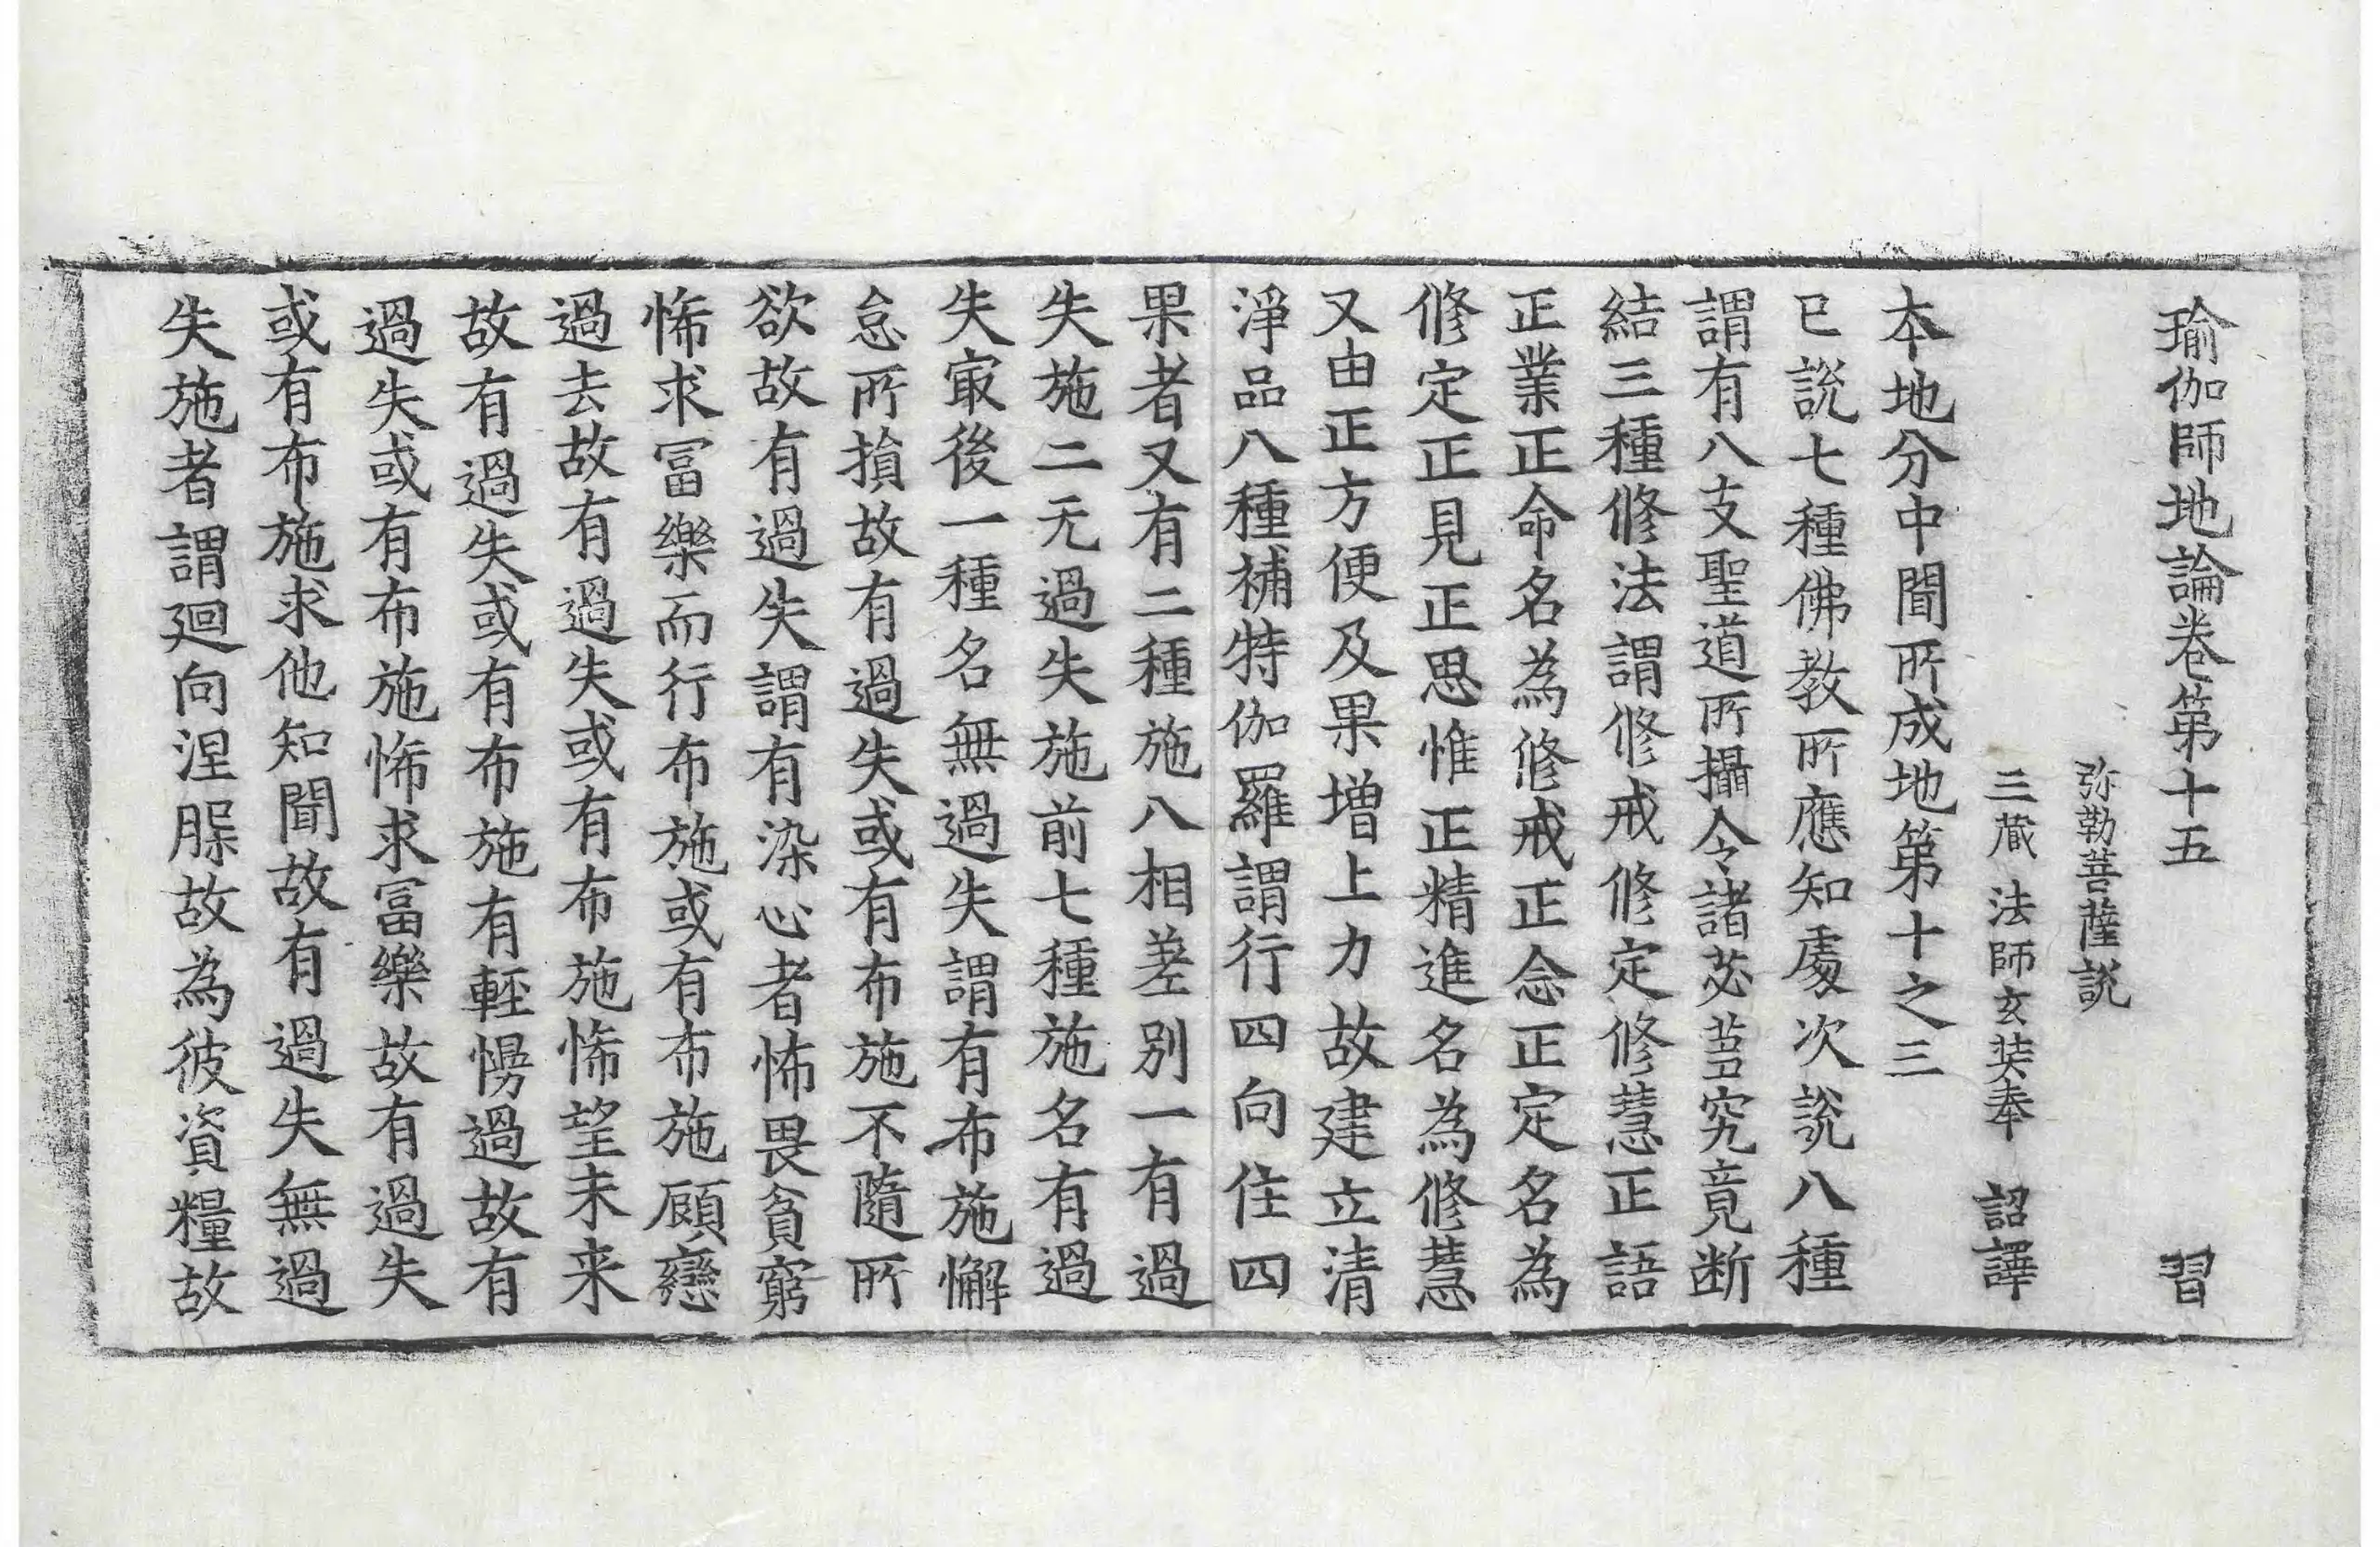 瑜伽師地論卷第十五　習
弥勒菩薩說
三藏法師玄奘奉　詔譯
本地分中聞所成地第十之三
已說七種佛教所應知處次說八種
謂有八支聖道所攝令諸苾芻究竟断
結三種修法謂修戒修定修慧正語
正業正命名為修戒正念正定名為
修定正見正思惟正精進名為修慧
又由正方便及果增上力故建立清
淨品八種補特伽羅謂行四向住四
果者又有二種施八相差別一有過
失施二无過失施前七種施名有過
失㝡後一種名無過失謂有布施懈
怠所損故有過失或有布施不隨所
欲故有過失謂有染心者怖畏貧窮
悕求冨樂而行布施或有布施顧戀
過去故有過失或有布施悕望未来
故有過失或有布施有輕慢過故有
過失或有布施悕求冨樂故有過失
或有布施求他知聞故有過失無過
失施者謂廻向涅槃故為彼資糧故